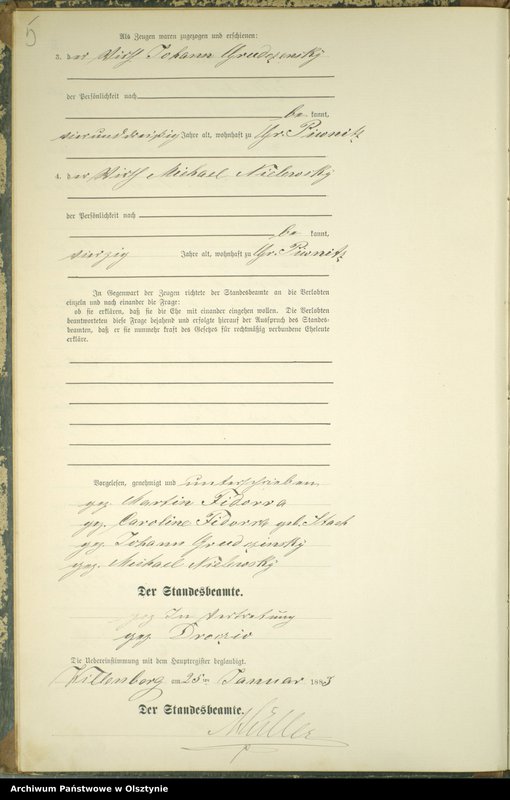 5
Als Zeugen waren zugezogen und erschienen:
3. der Wirth Johann Grudzensky
der Persönlichkeit nach
be kannt,
vierunddreißig Jahre alt, wohnhaft zu Gr. Piwnitz
4. der Wirth Michael Nielewsky
der Persönlichkeit nach
be kannt,
vierzig Jahre alt, wohnhaft zu Gr. Piwnitz
In Gegenwart der Zeugen richtete der Standesbeamte an die Verlobten
einzeln und nach einander die Frage:
ob sie erklären, daß sie die Ehe mit einander eingehen wollen. Die Verlobten
beantworteten diese Frage bejahend und erfolgte hierauf der Ausspruch des Standes-
beamten, daß er sie nunmehr kraft des Gesetzes für rechtmäßig verbundene Eheleute
erkläre.
Vorgelesen, genehmigt und unterschrieben
gez. Martin Fidorra
gez. Caroline Fidorra geb. Stach
gez. Johann Grudzinsky
gez. Michael Nielewsky
Der Standesbeamte.
gez. In Vertretung
gez. Drozio
Die Uebereinstimmung mit dem Hauptregister beglaubigt.
am 25ten Januar 1883
Der Standesbeamte.
Müller
Archiwum Państwowe w Olsztynie